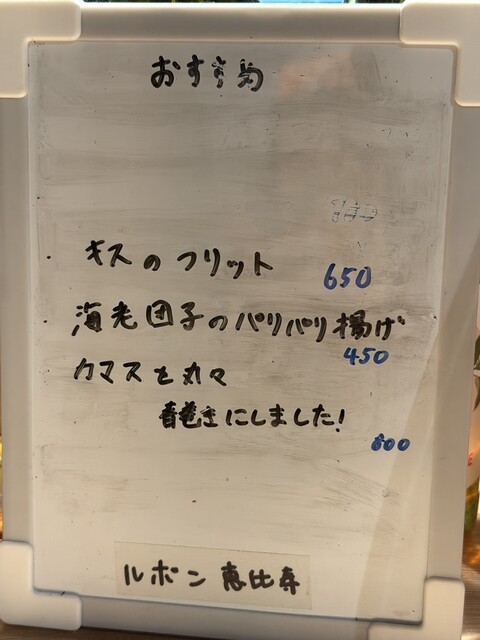 おすすめ
キスのフリット
650
海老団子のパリパリ揚げ
450
カマスを丸々
春巻きにしました!
600
ルポン 恵比寿